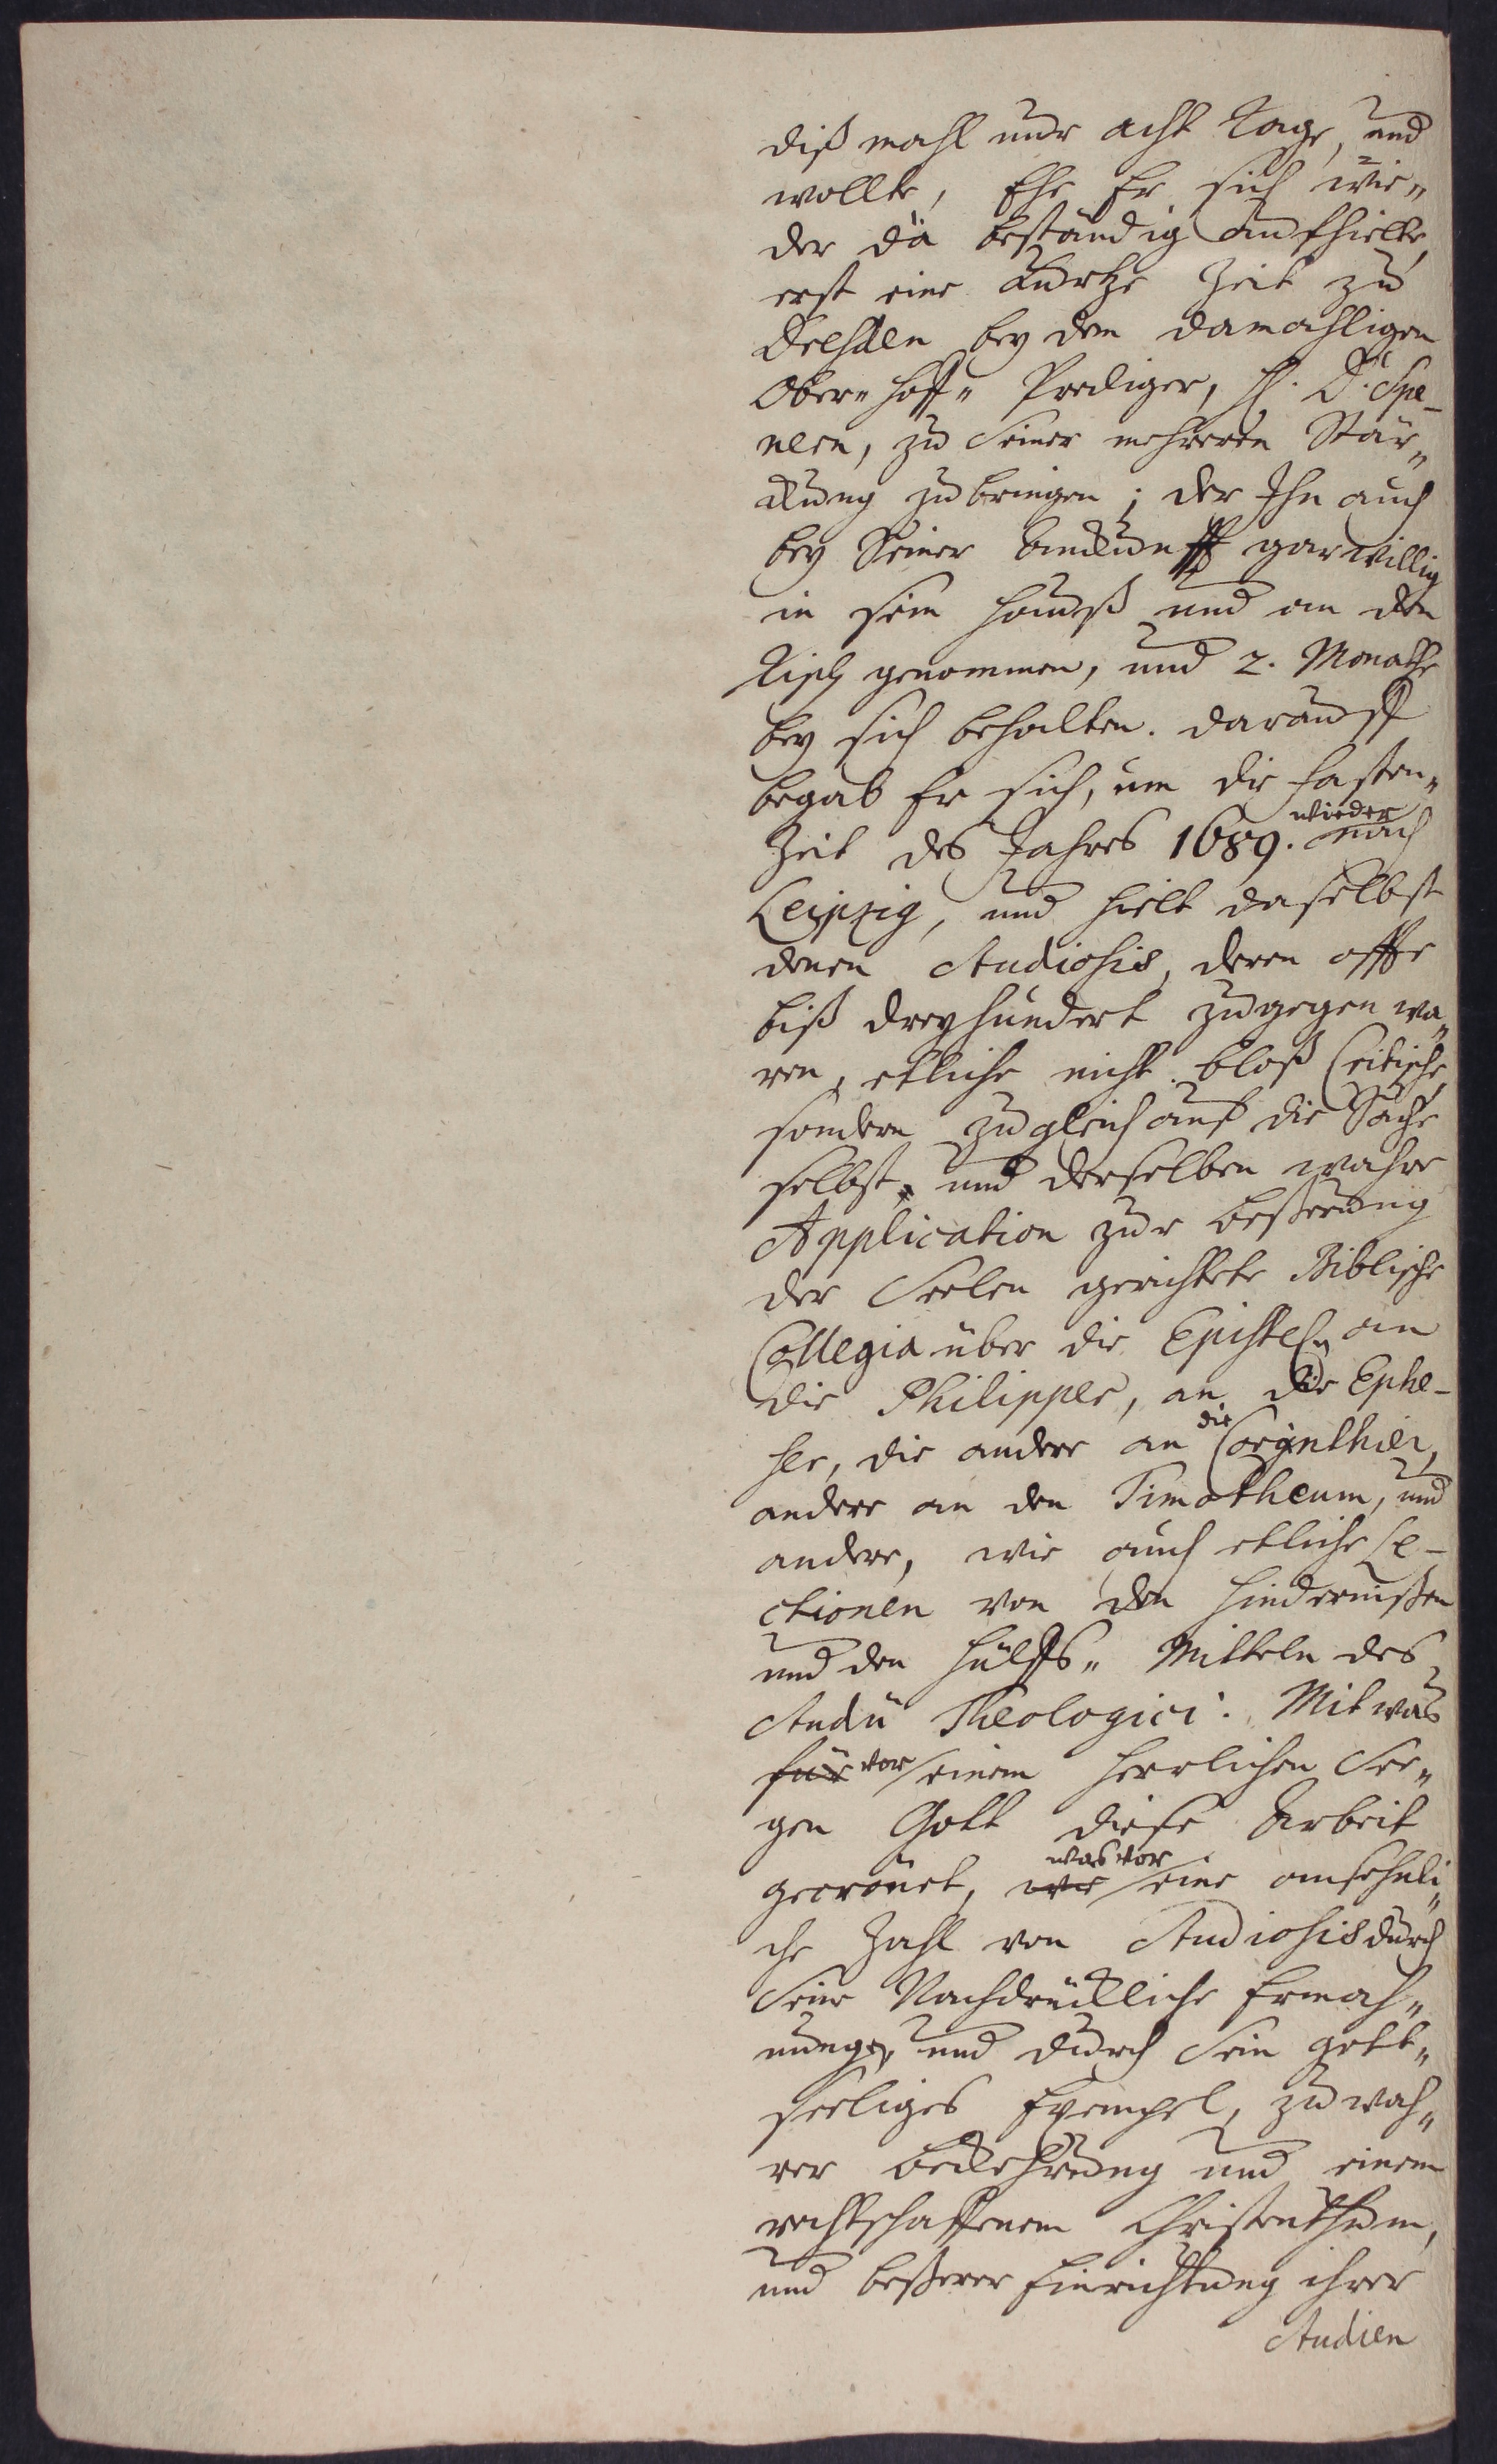 diß mahl nur acht Tage, und
wollte, Ehe Er sich wie„
der da beständig auffhielte,
erst eine Kurtze Zeit zu
Dreßden bey dem damahligen
Ober„ Hoff„ Prediger, H. D. Spe-
nern, zu Seiner mehreren Stär„
ckung zubringen; der Ihn auch
bey Seiner Ankunfft gar willig
in sein Hauß und an den
Tisch genommen, und 2. Monathe
bey sich behalten. Darauff
begab Er sich, um die Fasten„
Zeit des Jahres 1689. wieder nach
Leipzig, und hielt daselbst
denen Studiosis, deren offte
biß dreyhundert zugegen wa„
ren, etliche nicht bloß Critische,
sondern zugleich auf die Sache
selbst, und derselben wahre
Application zur Beßerung
der Seelen gerichtete Biblische
Collegia über die Episteln an
die Philipper, an die Ephe-
ser, die andere an die Corinthier,
andere an den Timotheum, und
andere, wie auch etliche Le-
ctionen von den Hindernißen
und den Hülffs„ Mitteln des
Studii Theologici. Mit was
für vor einem herrlichen See„
gen Gott diese Arbeit
gecrönet, wie was vor eine ansehnli„
che Zahl von Studiosis durch
Seine Nachdrückliche Ermah„
nung, und durch Sein gott„
seeliges Exempel, zu wah„
rer Bekehrung und einem
rechtschaffenem Christenthum,
und beßerer Einrichtung ihrer
Studien